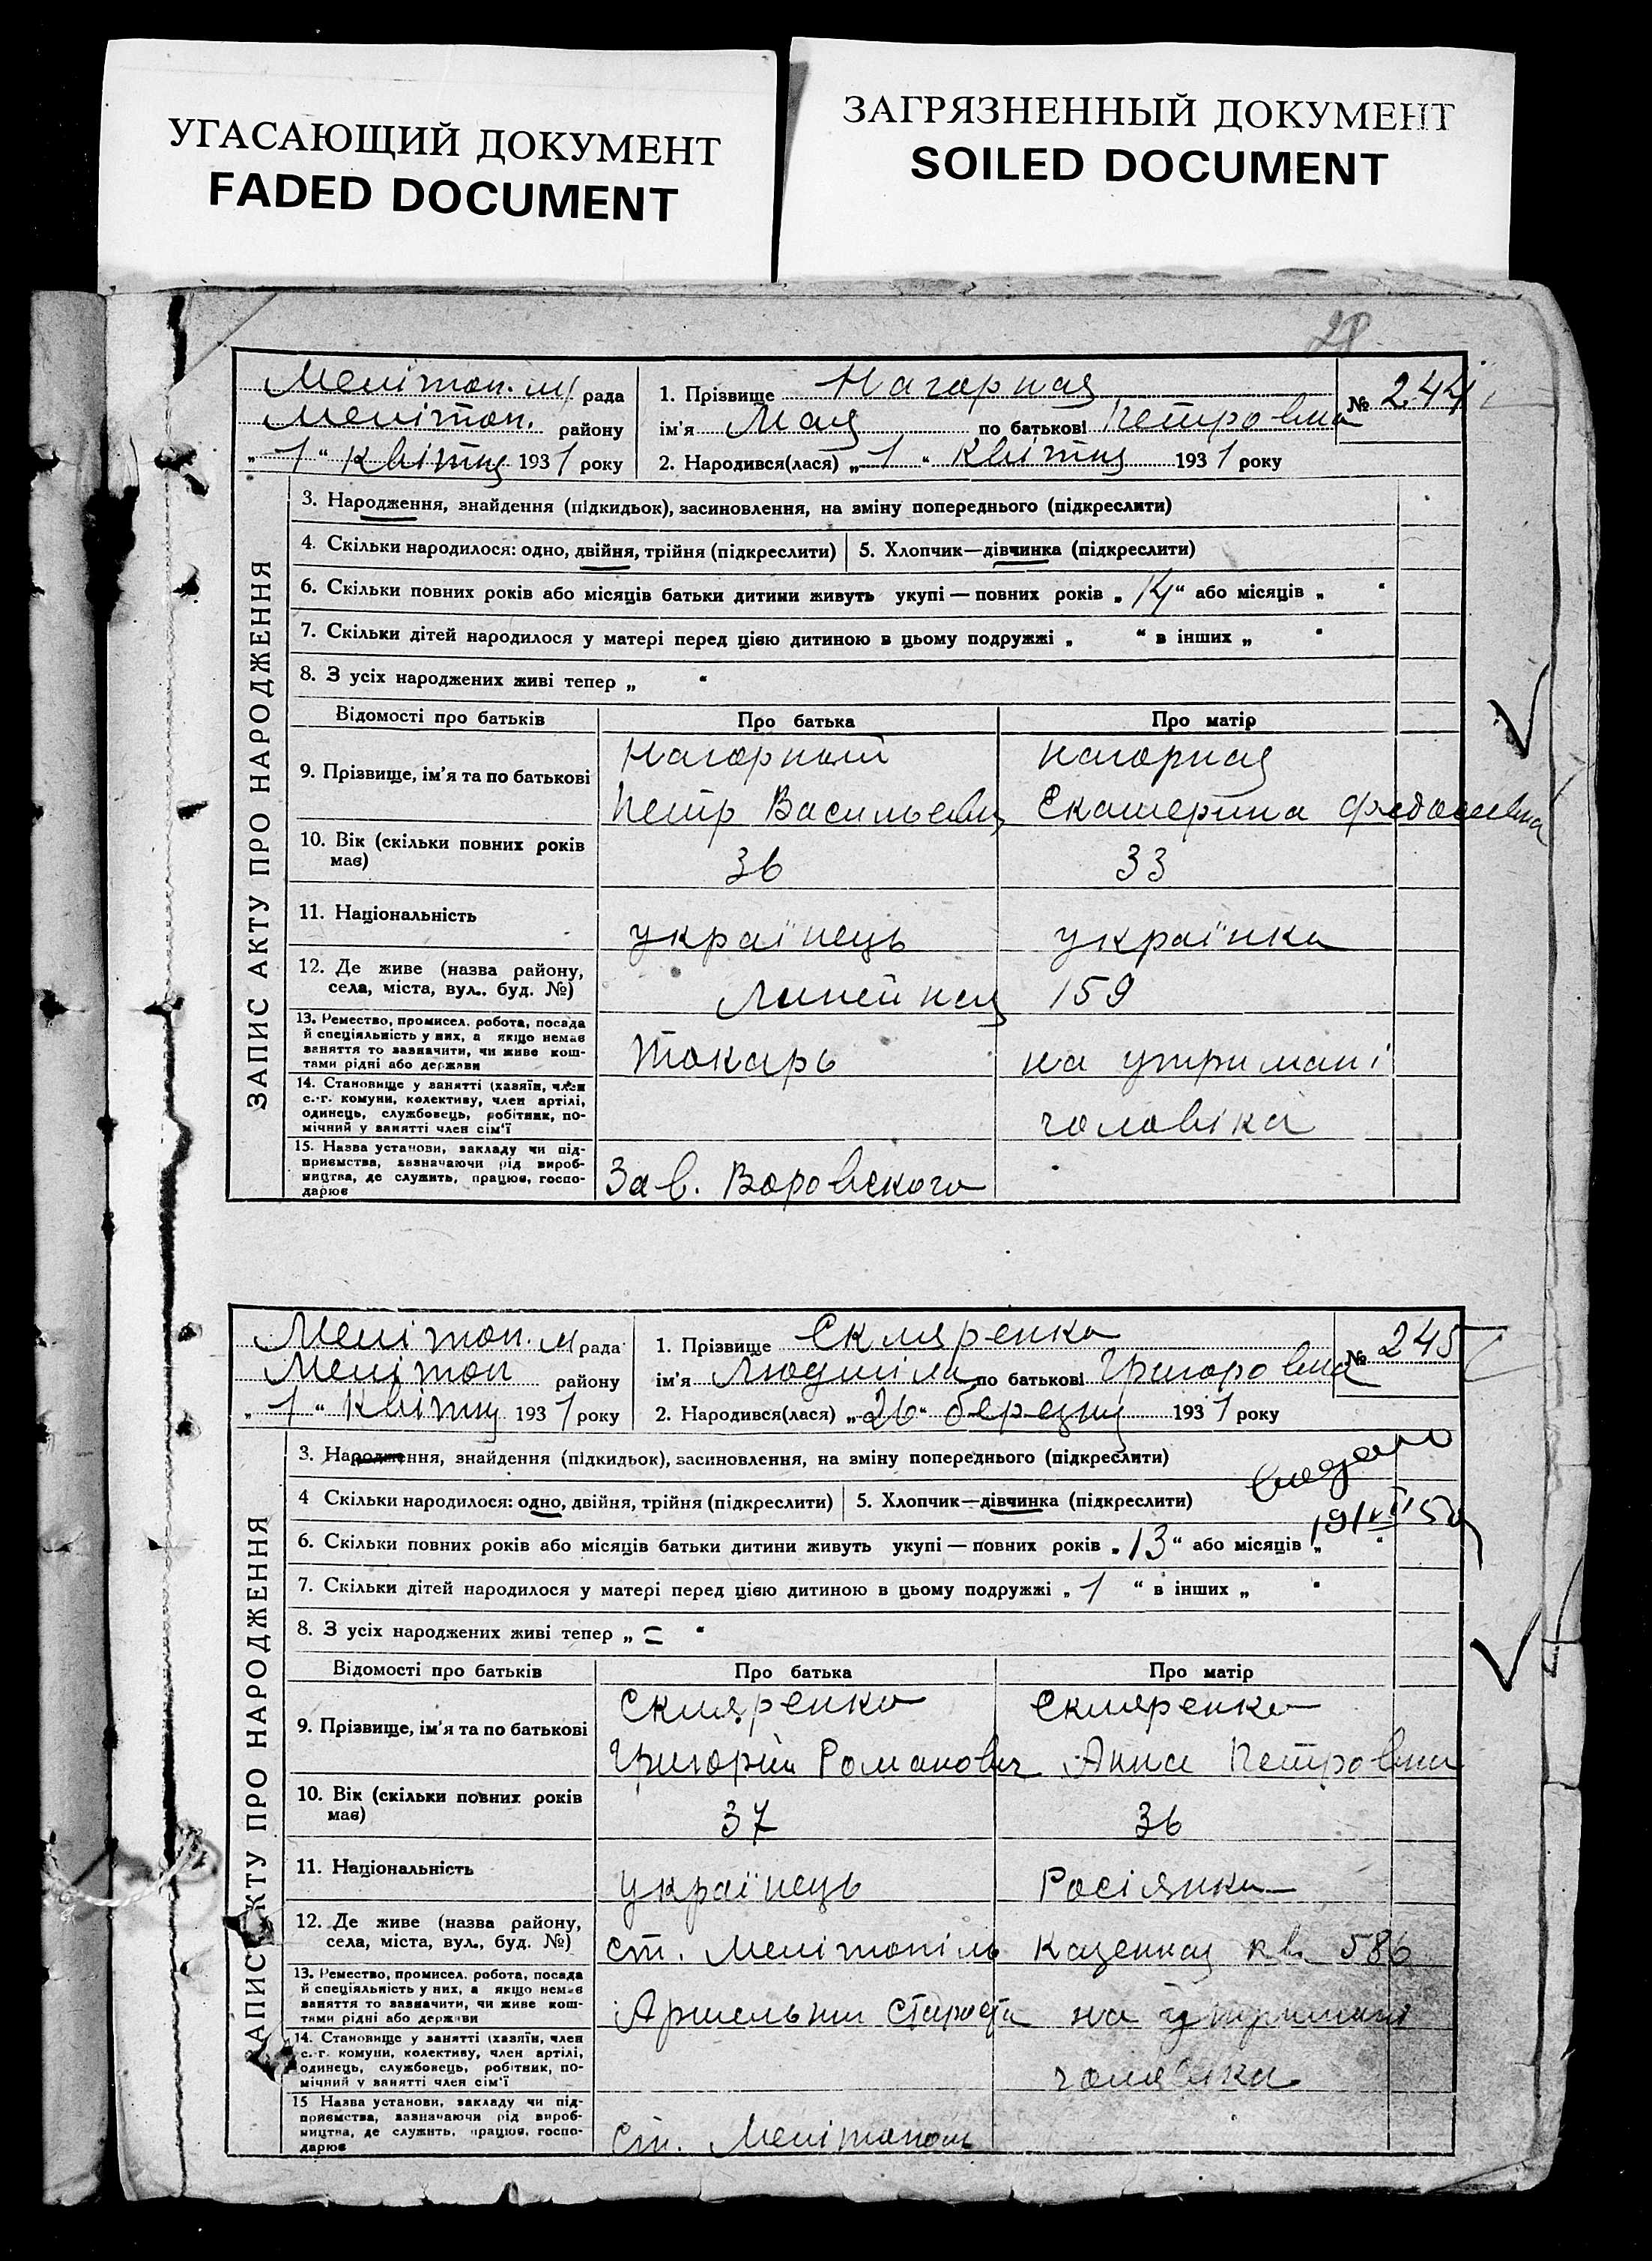 УГАСАЮЩИЙ ДОКУМЕНТ
FADED DOCUMENT
ЗАГРЯЗНЕННЫЙ ДОКУМЕНТ
SOILED DOCUMENT
28
ЗАПИС АКТУ ПРО НАРОДЖЕННЯ
Мелітоп. м/ рада
Мелітоп. району
„1" квітня 1931 року
1. Прізвище Нагорная
ім'я Мая по батькові Петровна
2. Народився(лася) „1" квітня 1931 року
№ 244
3. Народження, знайдення (підкидьок), засиновлення, на зміну попереднього (підкреслити)
4. Скільки народилося: одно, двійня, трійня (підкреслити) 5. Хлопчик—дівчинка (підкреслити)
6. Скільки повних років або місяців батьки дитини живуть укупі — повних років „14" або місяців „ "
7. Скільки дітей народилося у матері перед цією дитиною в цьому подружжі „ " в інших „ "
8. З усіх народжених живі тепер „ "
Відомості про батьків Про батька Про матір
9. Прізвище, ім'я та по батькові
Нагорний Нагорная
Петр Васильевич Екатерина Федосеевна
10. Вік (скільки повних років має) 36 33
11. Національність українець українка
12. Де живе (назва району, села, міста, вул., буд. №) Линейная 159
13. Ремество, промисел, робота, посада й спеціяльність у них, а якщо немає заняття то зазначити, чи живе коштами рідні або держави
Токарь на утримані
14. Становище у занятті (хазяїн, член с.-г. комуни, колективу, член артілі, одинець, службовець, робітник, помічний у занятті член сім'ї
чоловіка
15. Назва установи, закладу чи підприємства, зазначаючи рід виробництва, де служить, працює, господарює
Зав. Воровского
ЗАПИС АКТУ ПРО НАРОДЖЕННЯ
Мелітоп. м рада
Мелітоп району
„1" квітня 1931 року
1. Прізвище Скляренко
ім'я Людміла по батькові Григоровна
2. Народився(лася) „26" березня 1931 року
№ 245
3. Народження, знайдення (підкидьок), засиновлення, на зміну попереднього (підкреслити)
4 Скільки народилося: одно, двійня, трійня (підкреслити) 5. Хлопчик—дівчинка (підкреслити)
6. Скільки повних років або місяців батьки дитини живуть укупі — повних років „13" або місяців „ "
7. Скільки дітей народилося у матері перед цією дитиною в цьому подружжі „1 " в інших „ "
8. З усіх народжених живі тепер „ = "
Відомості про батьків Про батька Про матір
9. Прізвище, ім'я та по батькові
Скляренко Скляренко
Григорій Романович Анна Петровна
10. Вік (скільки повних років має) 37 36
11. Національність українець Росіянка
12. Де живе (назва району, села, міста, вул., буд. №) ст. Мелітопіль Казенная кв. 586
13. Ремество, промисел, робота, посада й спеціяльність у них, а якщо немає заняття то зазначити, чи живе коштами рідні або держави
Артельни староста на утримані
14. Становище у занятті (хазяїн, член с.-г. комуни, колективу, член артілі, одинець, службовець, робітник, помічний у занятті член сім'ї
чоловіка
15 Назва установи, закладу чи підприємства, зазначаючи рід виробництва, де служить, працює, господарює
Ст. Мелітополь